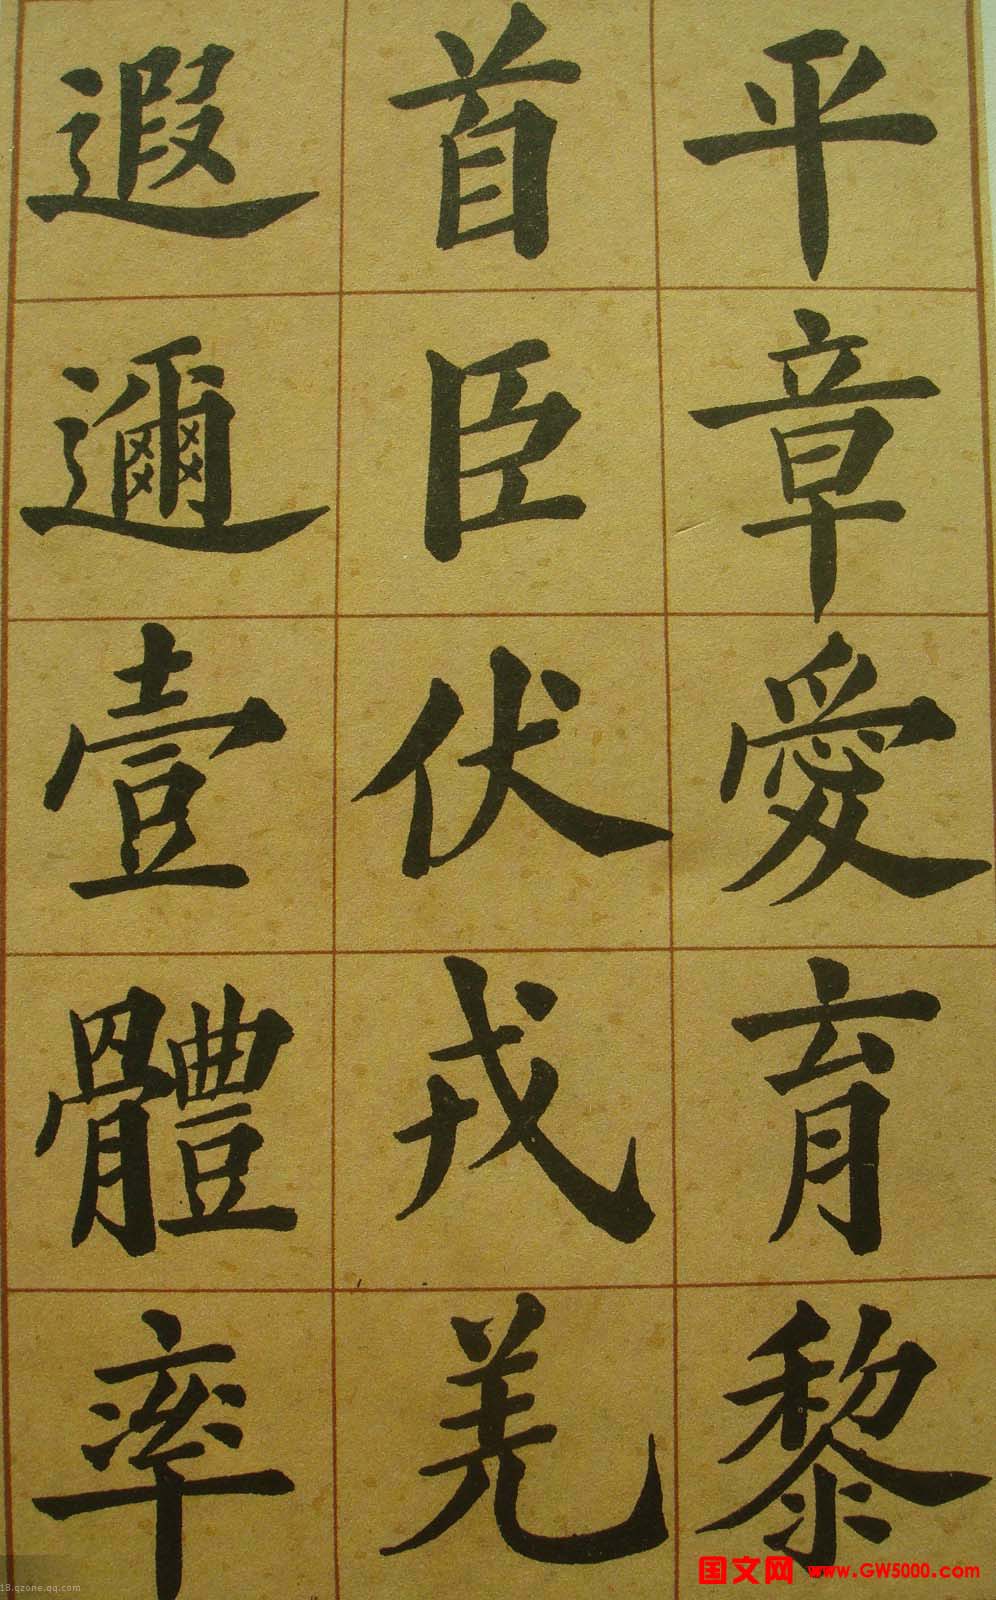 平章愛育黎
首臣伏戎羌
遐邇壹體率
国文网 www.GW5000.com
18.qzone.qq.com